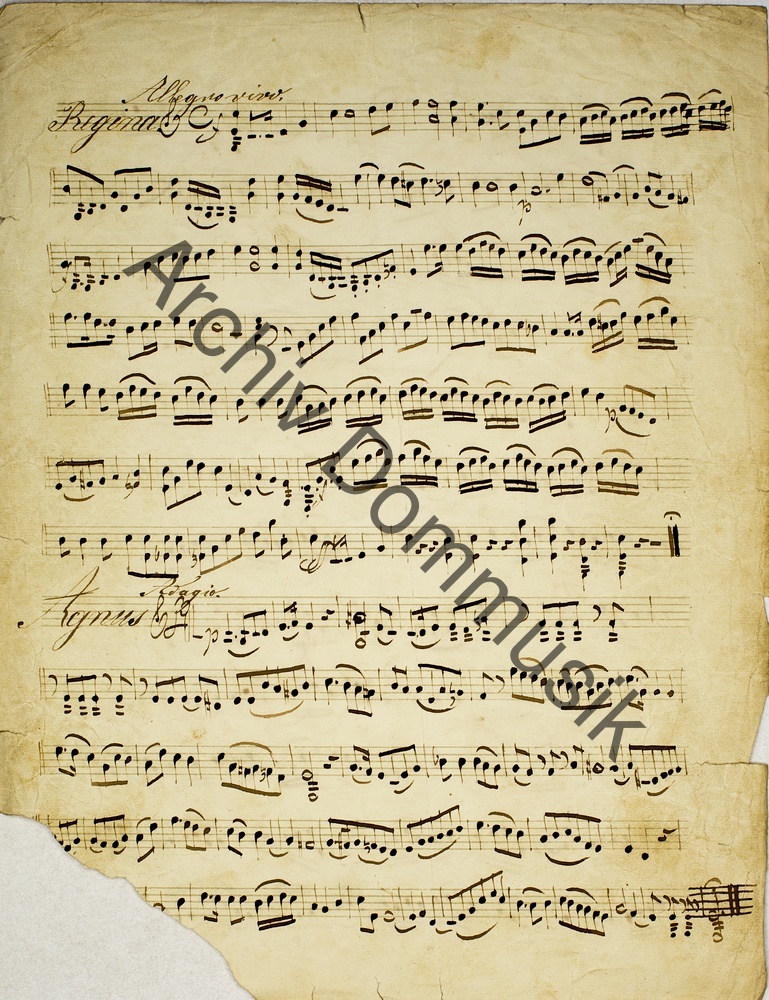 Allegro vivo.
Regina
Archiv Dommusik
Adagio.
Agnus